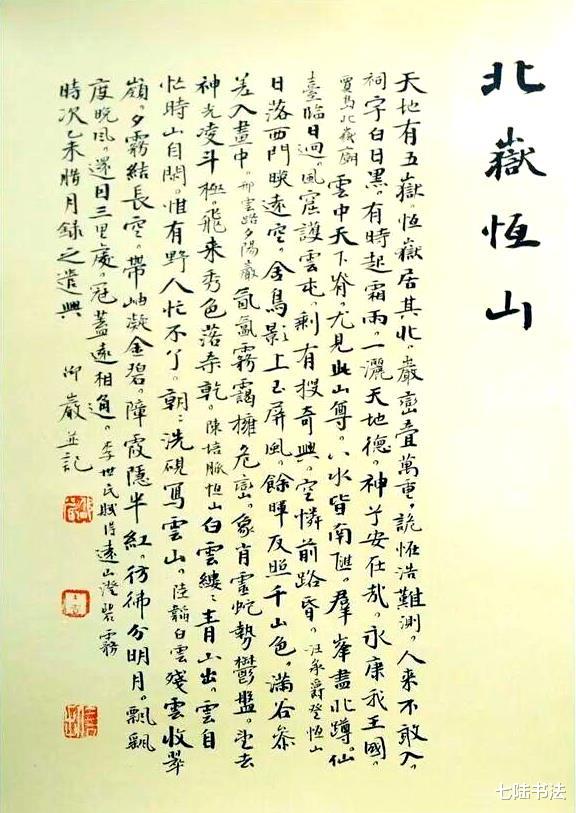 北嶽恆山
天地有五嶽。恆嶽居其北。巖巒疊萬重，詭恠浩難測。人来不敢入。
祠宇白日黑。有時起霜雨。一灑天地德。神兮安在哉。永康我王國。
賈島北嶽廟 雲中天下脊。尤見此山尊。八水皆南匯。羣峯盡北蹲。仙
臺臨日迥。風窟護雲屯。剩有搜奇興。空憐前路昏。汪承爵登恆山
日落西門映遠空。舍鳥影上玉屏風。餘暉反照千山色。滿谷參
差入畫中。邢雲路夕陽巖 氤氳霧靄擁危巒。象肖靈蛇勢鬱盤。望去
神光凌斗極。飛来秀色落桑乾。陳培脈恆山 白雲縷々青山出。雲自
忙時山自閑。惟有野人忙不了。朝々洗硯寫雲山。陸韜白雲 殘雲收翠
嶺。夕霧結長空。帶岫凝金碧。障霞隱半紅。彷彿分明月。飄颻
度晚風。還因三里處。冠蓋遠相通。李世民賦得遠山澄碧霧
時次乙未腊月錄之遣興 仰巖並記
七陆书法